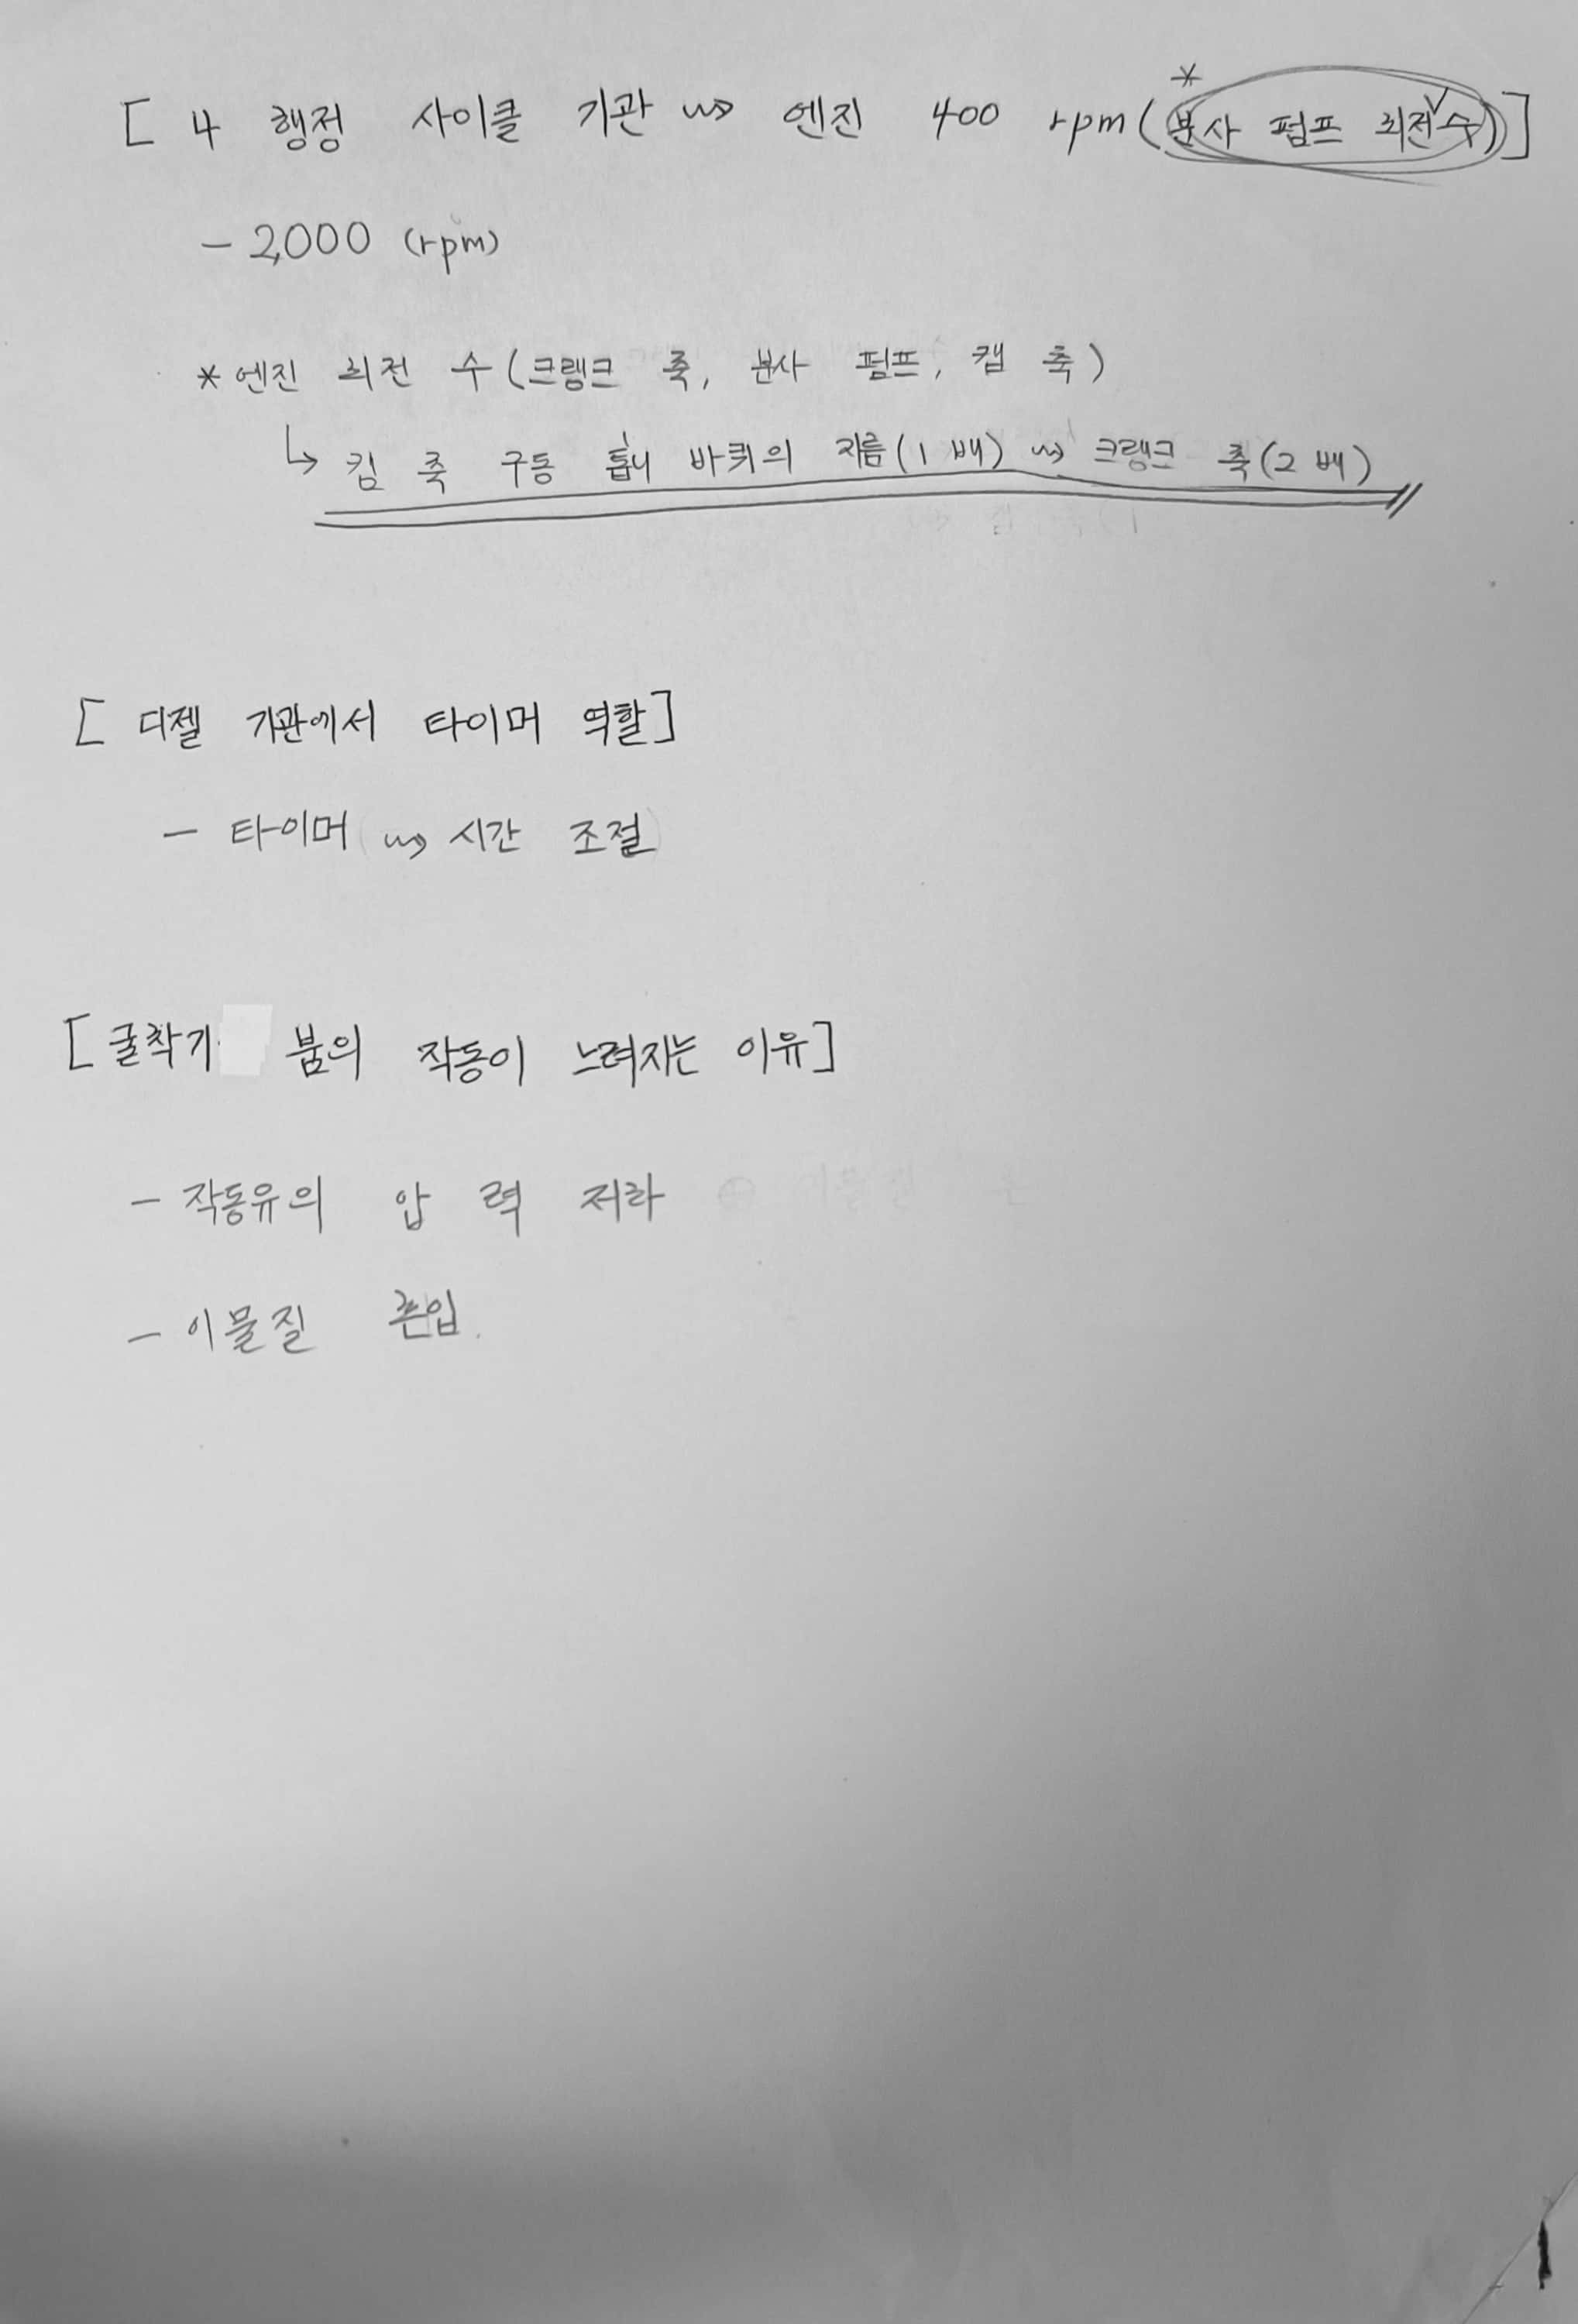 [ 4 행정 사이클 기관 ⇝ 엔진 400 rpm (*분사 펌프 회전✓수)]
- 2,000 (rpm)
* 엔진 회전 수 (크랭크 축, 분사 펌프, 캡 축)
↳ 킴 축 구동 톱니 바퀴의 지름(1 배) ⇝ 크랭크 축(2 배)
[ 디젤 기관에서 타이머 역할]
- 타이머 ⇝ 시간 조절
[굴착기 붐의 작동이 느려지는 이유]
- 작동유의 압 력 저하
- 이물질 혼입.